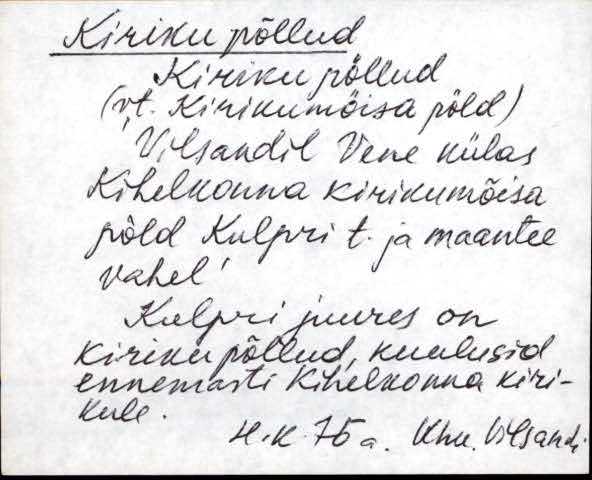 Kiriku põllud
Kiriku põllud
(vt. Kirikumõisa põld)
Vilsandil Vene külas
Kihelkonna kirikumõisa
põld Kulpri t. ja maantee
vahel'
Kulpri juures on
kiriku põllud, kuulusid
ennemasti Kihelkonna kiri-
kule.
H.K. 75 a. Khn. Vilsandi